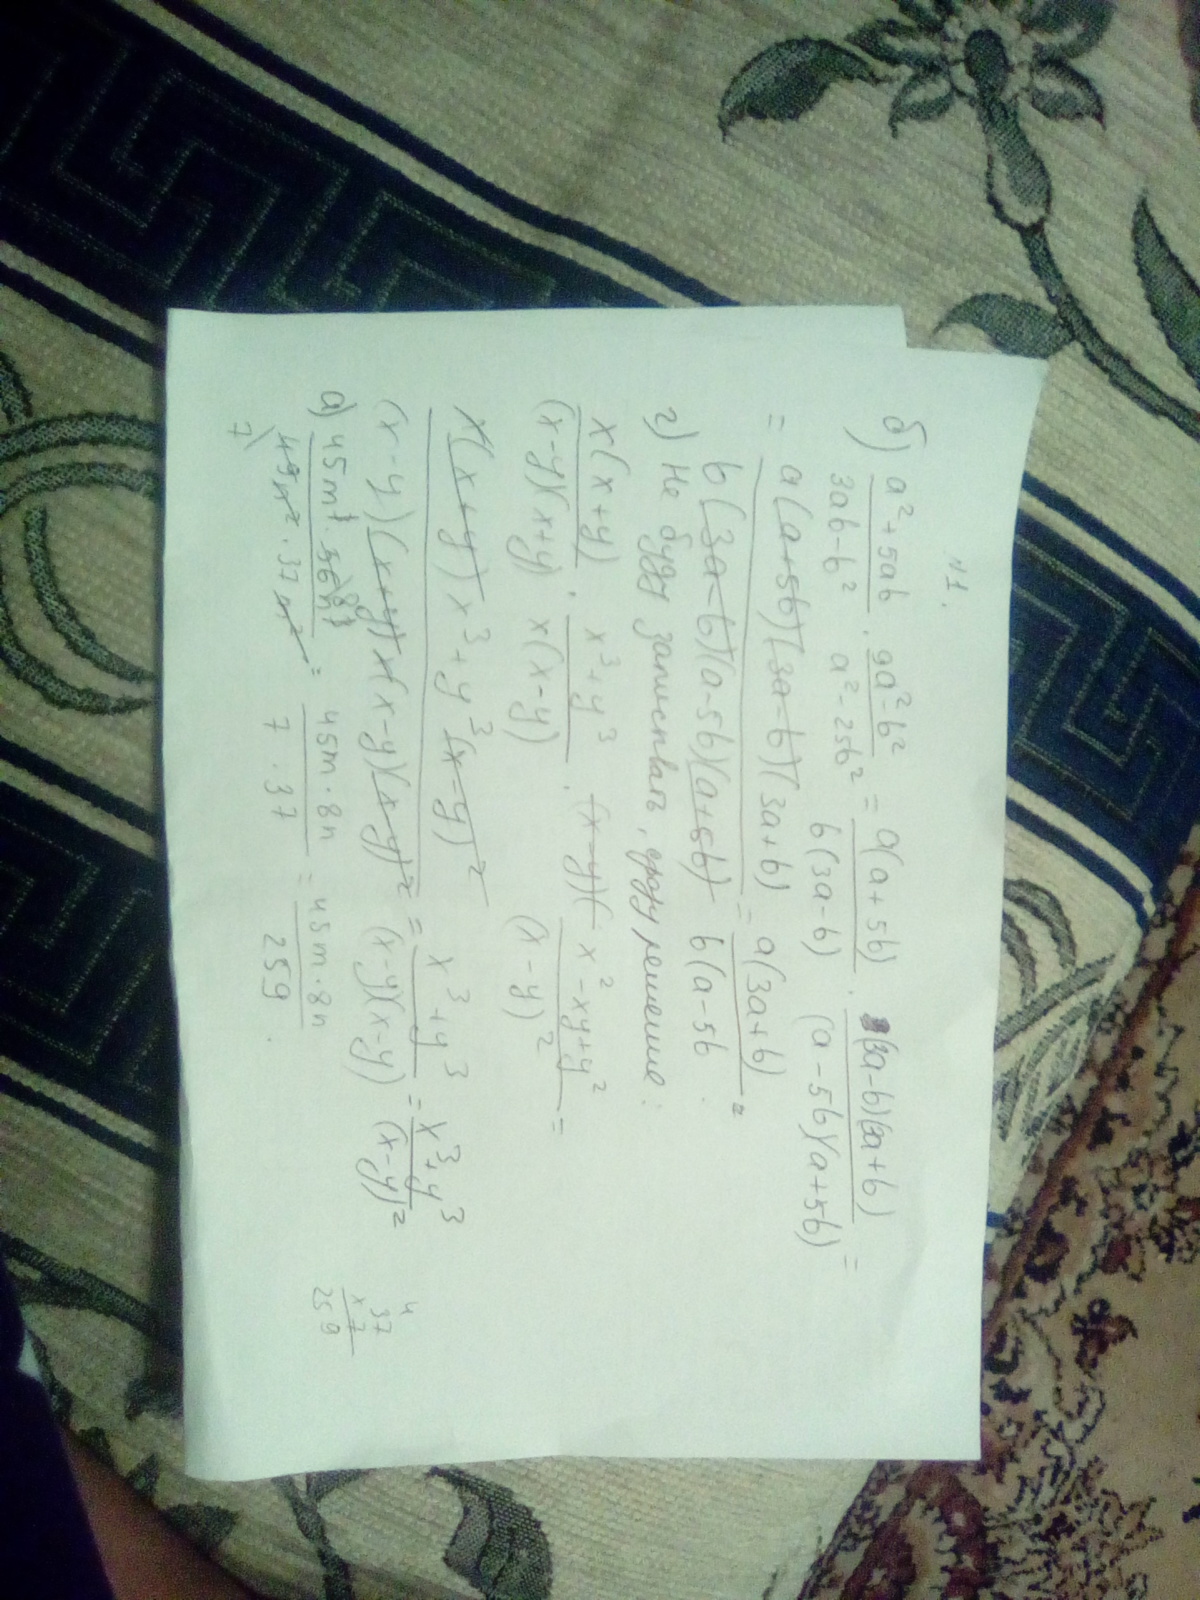 №1.
б) a² + 5ab / 3ab - b² · 9a² - b² / a² - 25b² = a(a + 5b) / b(3a - b) · (3a - b)(3a + b) / (a - 5b)(a + 5b) =
= a(a + 5b)(3a - b)(3a + b) / b(3a - b)(a - 5b)(a + 5b) = a(3a + b) / b(a - 5b
г) Не буду записывать, сразу решение:
x(x + y) / (x - y)(x + y) · x³ + y³ / x(x - y) · x² - xy + y² / (x - y)² =
x(x + y) x³ + y³ (x - y)² / (x - y)(x + y) x(x - y)(x - y)² = x³ + y³ / (x - y)(x - y) = x³ + y³ / (x - y)²
а) 45m 56n / 49 · 37 = 45m · 8n / 7 · 37 = 45m · 8n / 259
7
8
4
37
x 7
259